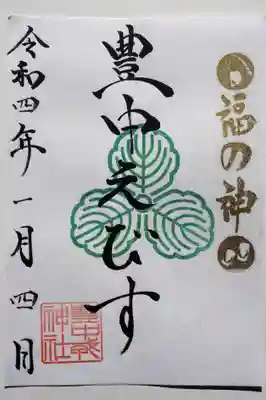 福の神
豊中えびす
令和四年一月四日
豊中戎
神社